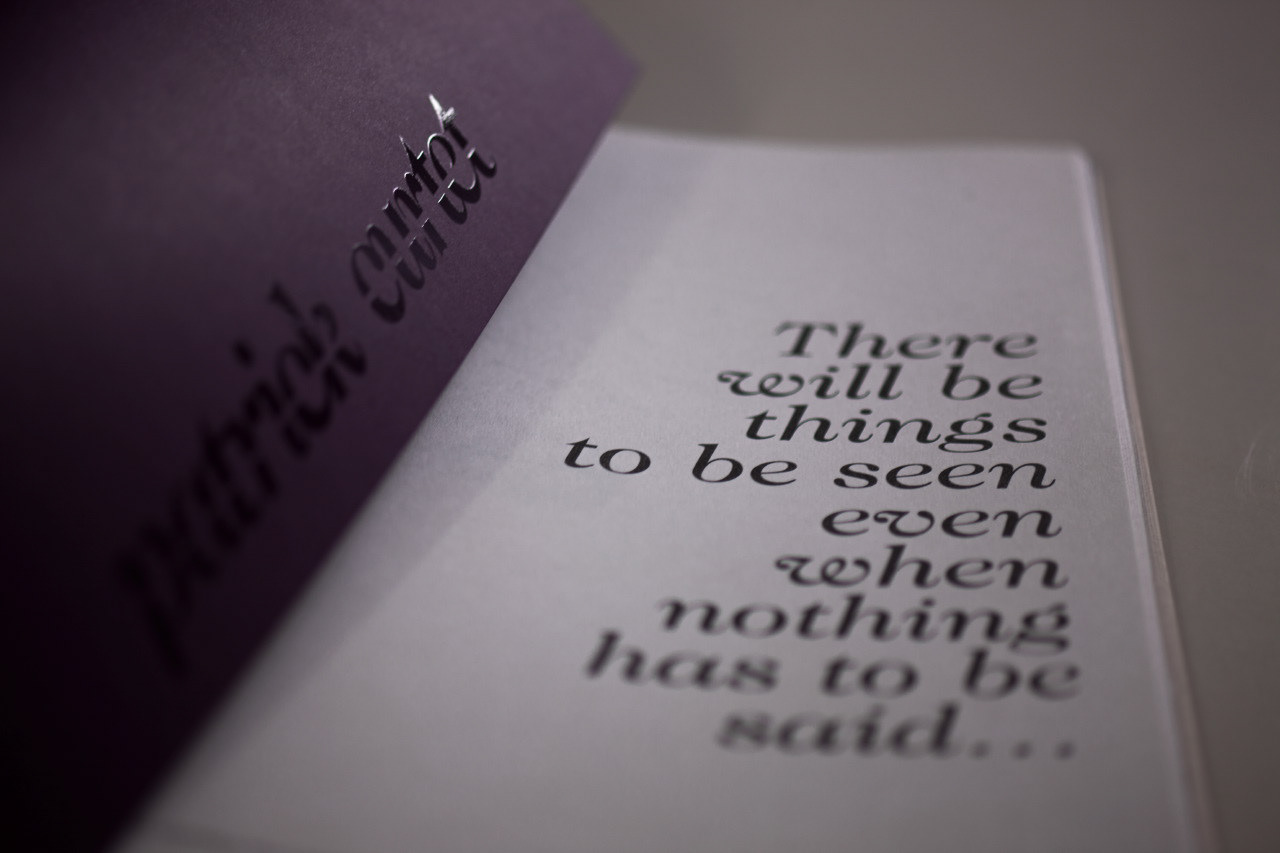 patrick curtat
There
will be
things
to be seen
even
when
nothing
has to be
said...